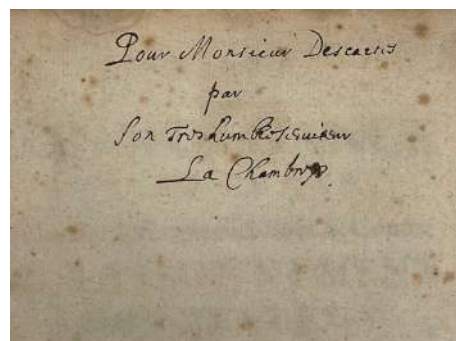 Pour Monsieur Descartes
par
Son Treshumble serviteur
La Chambre